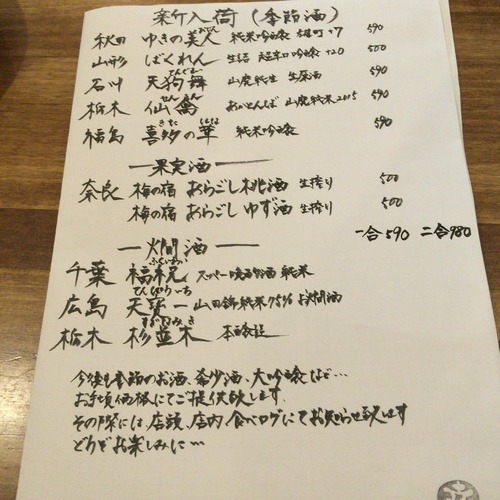 新入荷(季節酒)
秋田 ゆきの美人 純米吟醸 雄町 +7 590
山形 ばくれん 生詰 超辛口吟醸 +20 500
石川 天狗舞 山廃純生 生原酒 590
栃木 仙禽 おりがらみ 山廃純米2015 590
福島 喜多の華 純米吟醸 590
果実酒
奈良 梅の宿 あらごし桃酒 生搾り 500
梅の宿 あらごしゆず酒 生搾り 500
一合590 二合980
燗酒
千葉 福祝 スーパー晩酌酒 純米
広島 天寶一 山田錦純米75% お燗酒
栃木 杉並木 本醸造
今後も季節のお酒、希少酒、大吟醸など…
お手頃価格にてご提供致します。
その際には、店頭、店内、食べログにてお知らせ致します
どうぞお楽しみに…